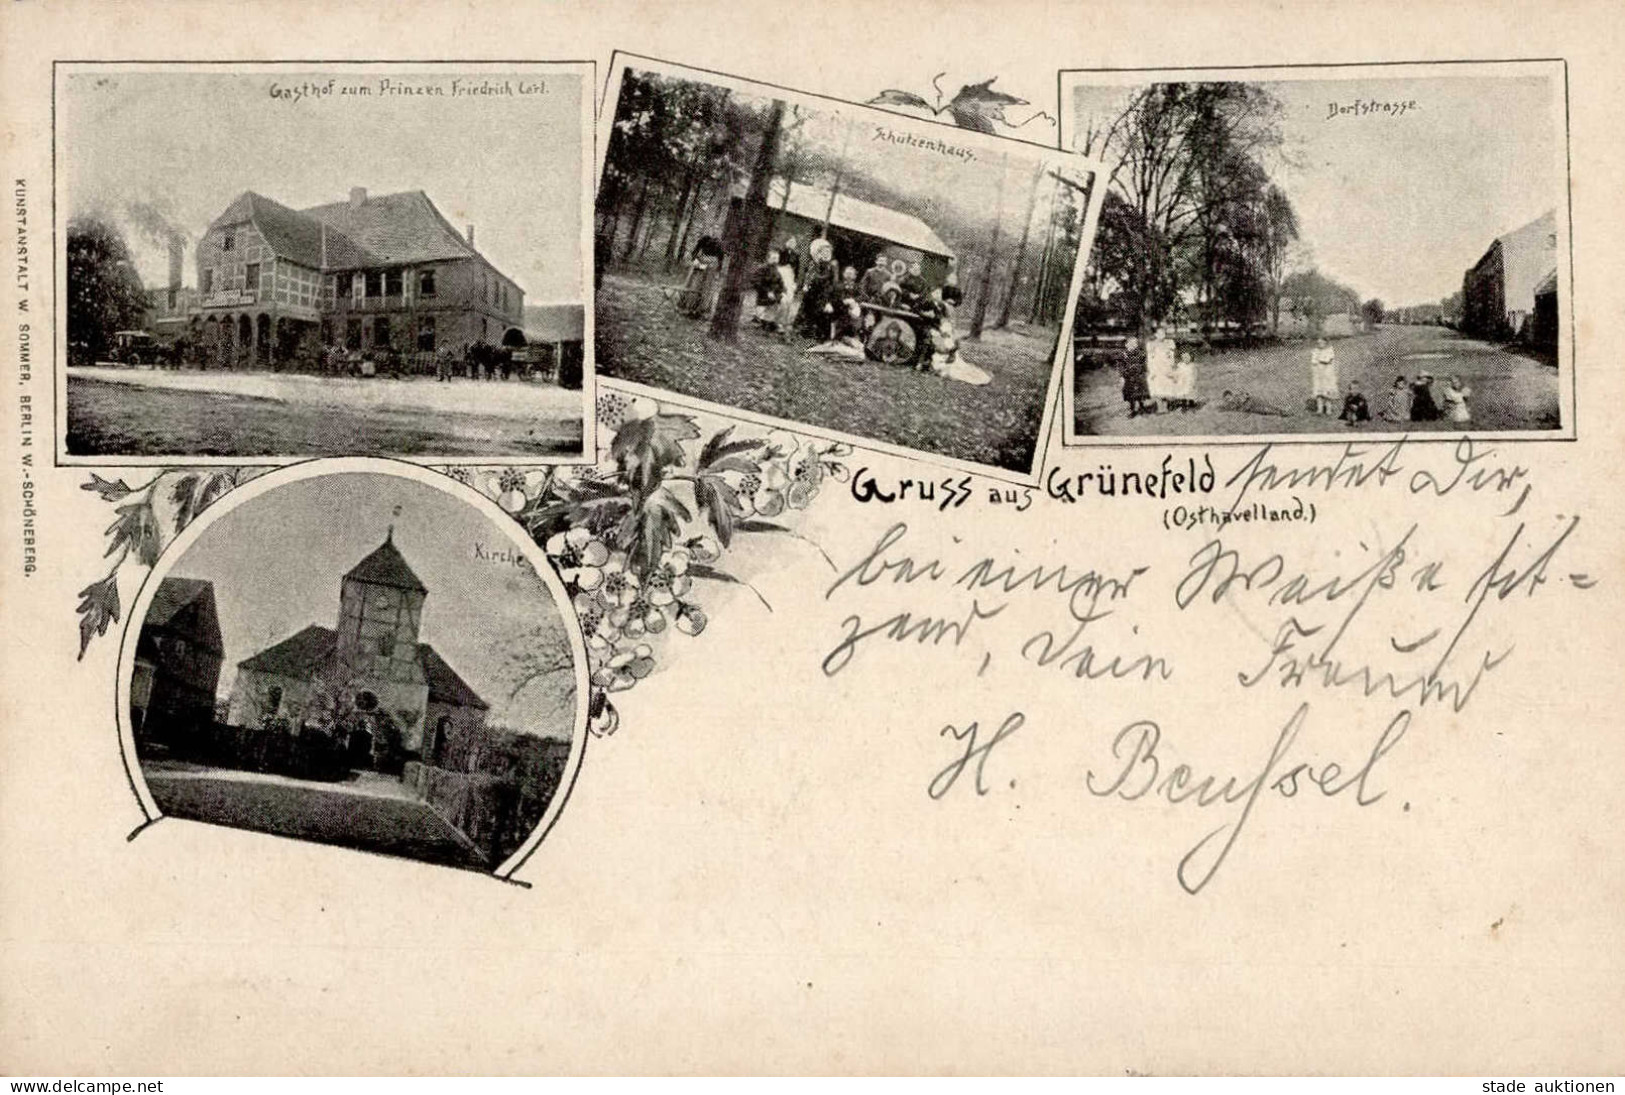 Gasthof zum Prinzen Friedrich Carl.
Schützenhaus.
Dorfstrasse.
KUNSTANSTALT W. SOMMER, BERLIN W.-SCHÖNEBERG.
Kirche
Gruss aus Grünefeld sendet Dir,
(Osthavelland.)
bei einer Weiße sit-
zend, Dein Freund
H. Beussel.
Copyright [c] delcampe.net
stade auktionen